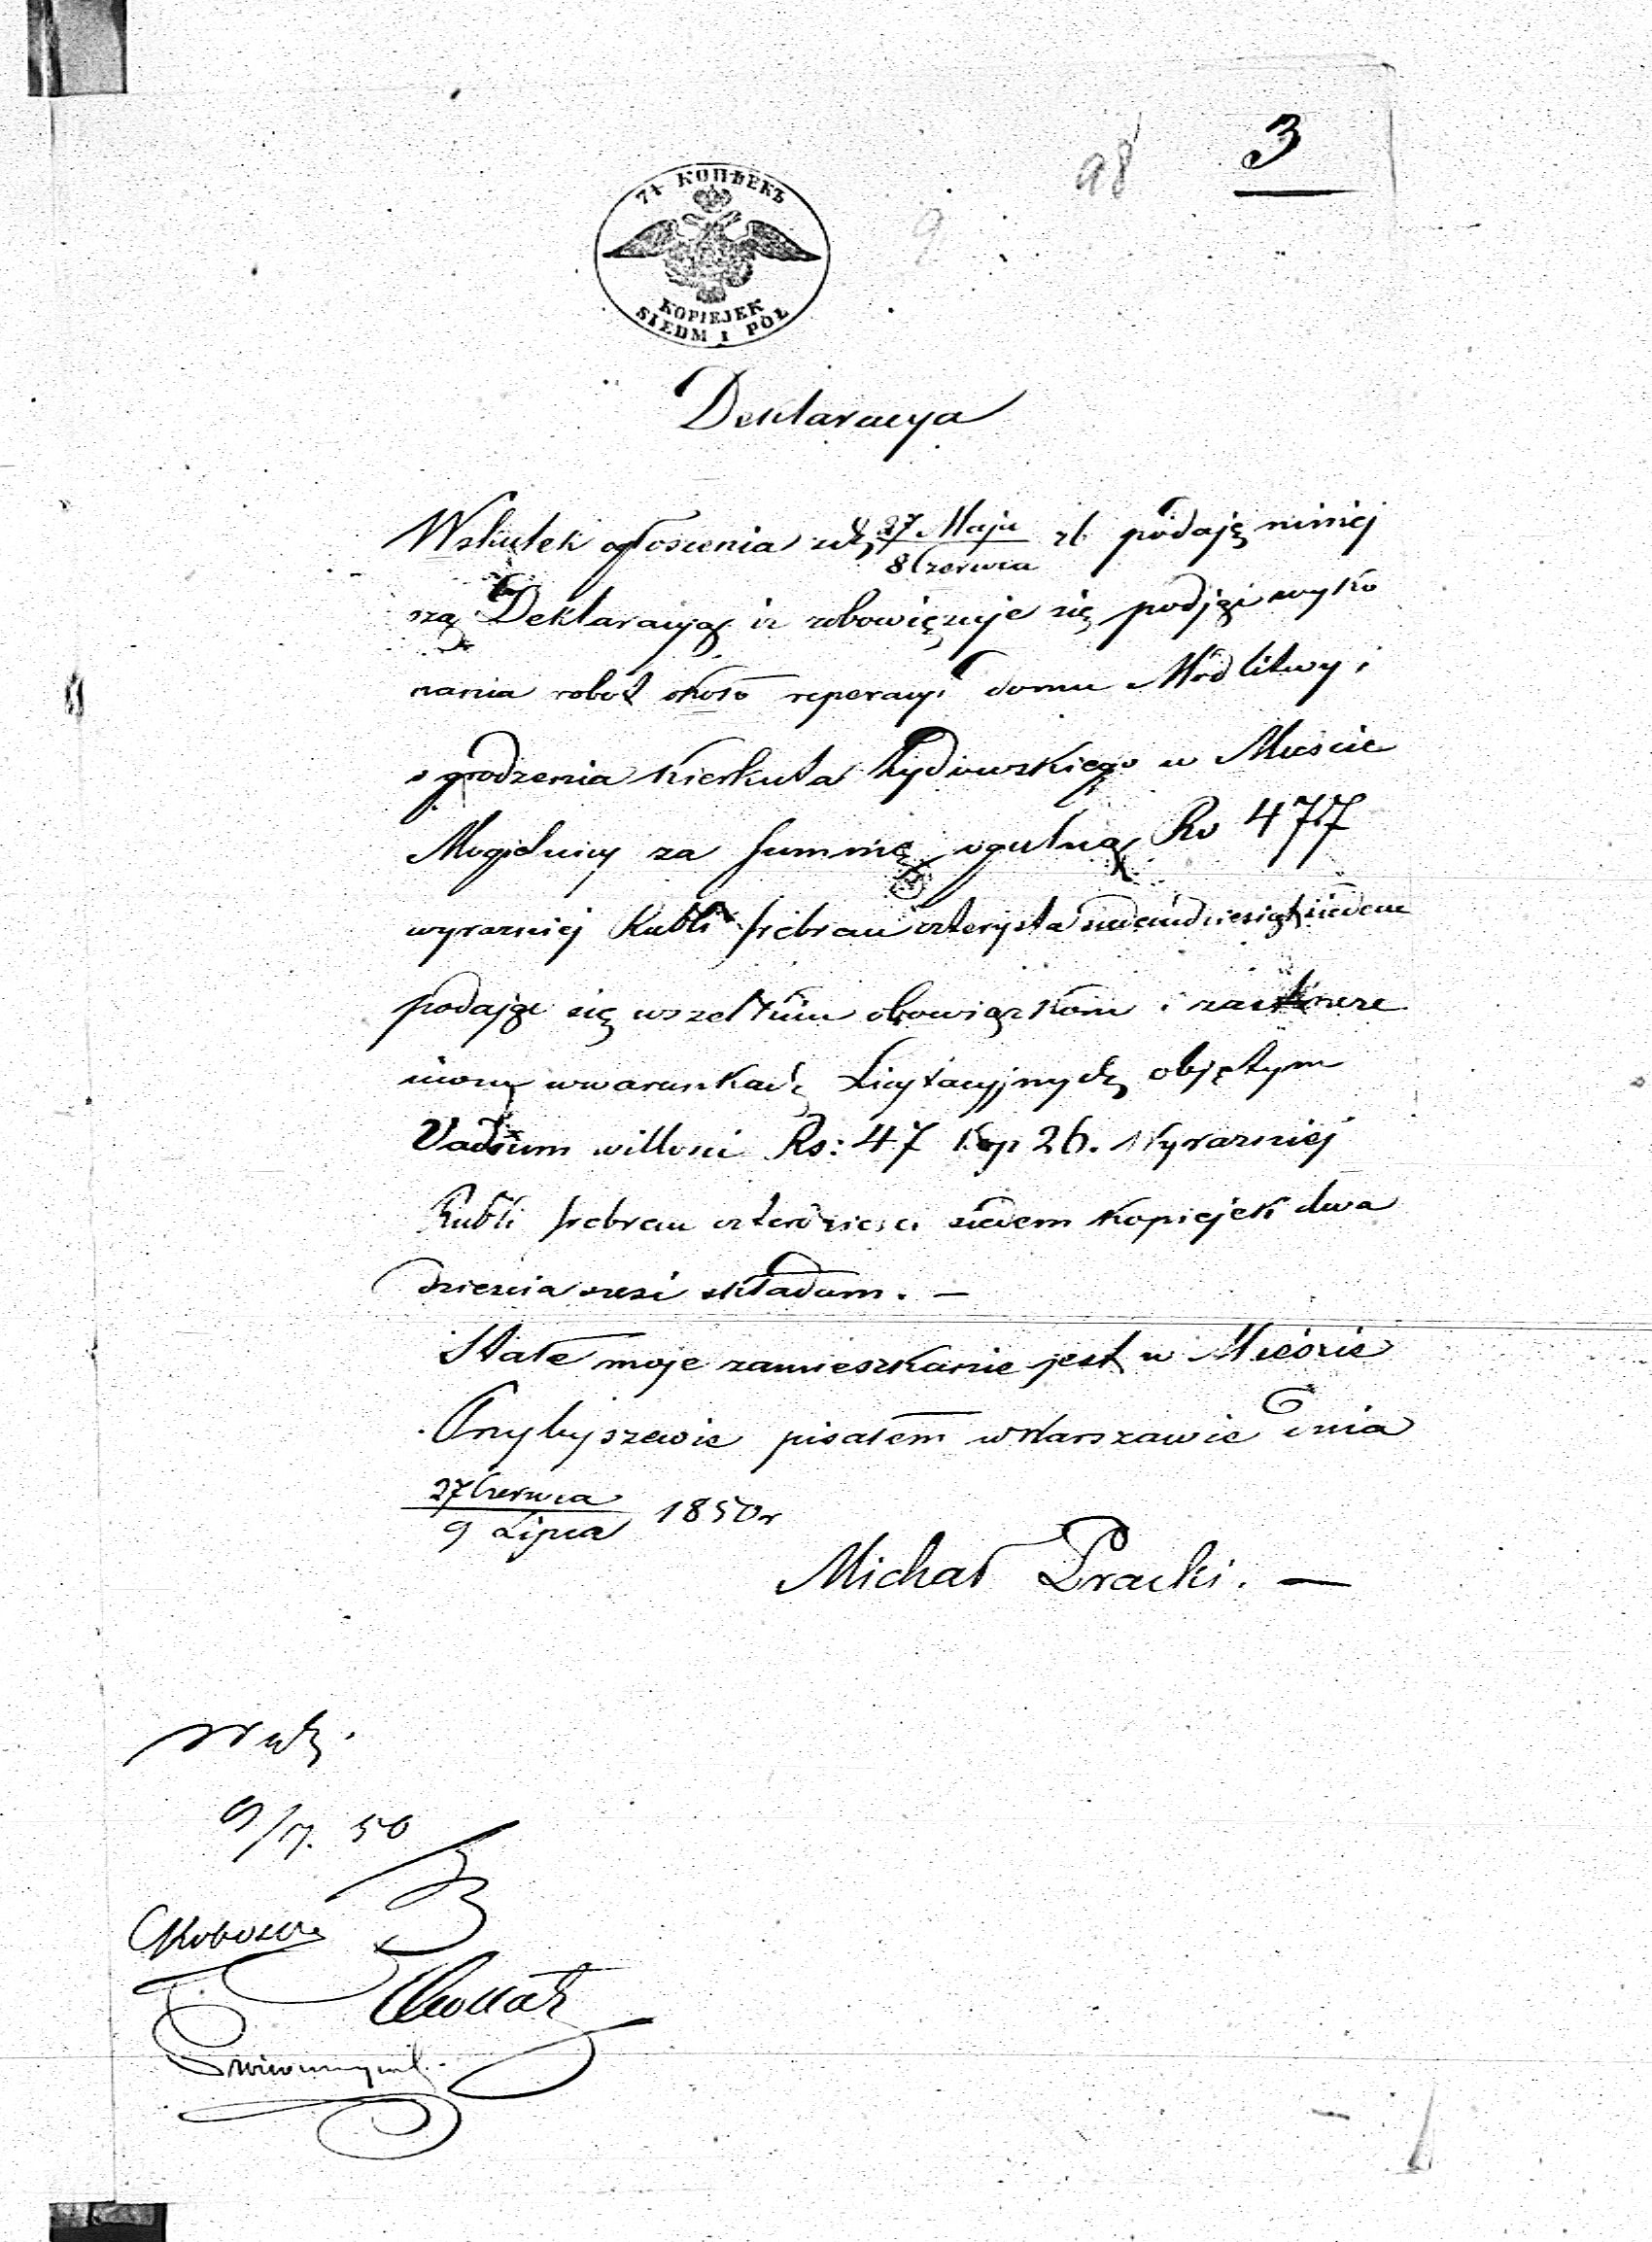 3
98
9
7½ КОПѢЕКЪ
KOPIEJEK
SIEDM I PÓŁ
Deklaracya
Wskutek ogłoszenia z d. 27 Maja / 8 Czerwca r b podaję niniej
szą Deklaracyą iż zobowięzuje się podjąć wyko
nania robot około reperacyi domu Modlitwy i
ogrodzenia Kierkuta Żydowskiego w Mieście
Mogielnicy za Summę ogulną Rs 477
wyrazniej Rubli srebrem czterysta siedemdziesiąt siedem
podając się wszelkim obowiązkom i zastrzeże
niom w warunkach Licytacyjnych objętym
Vadium w illości Rs: 47 Kop 26. Wyrazniej
Rubli srebrem czterdzieści siedem kopiejek dwa
dzieścia sześć składam. —
Stałe moje zamieszkanie jest w Mieście
Przybyszewie pisałem w Warszawie Dnia
27 Czerwca / 9 Lipca 1850 r
Michał Pracki. —
9/7. 50